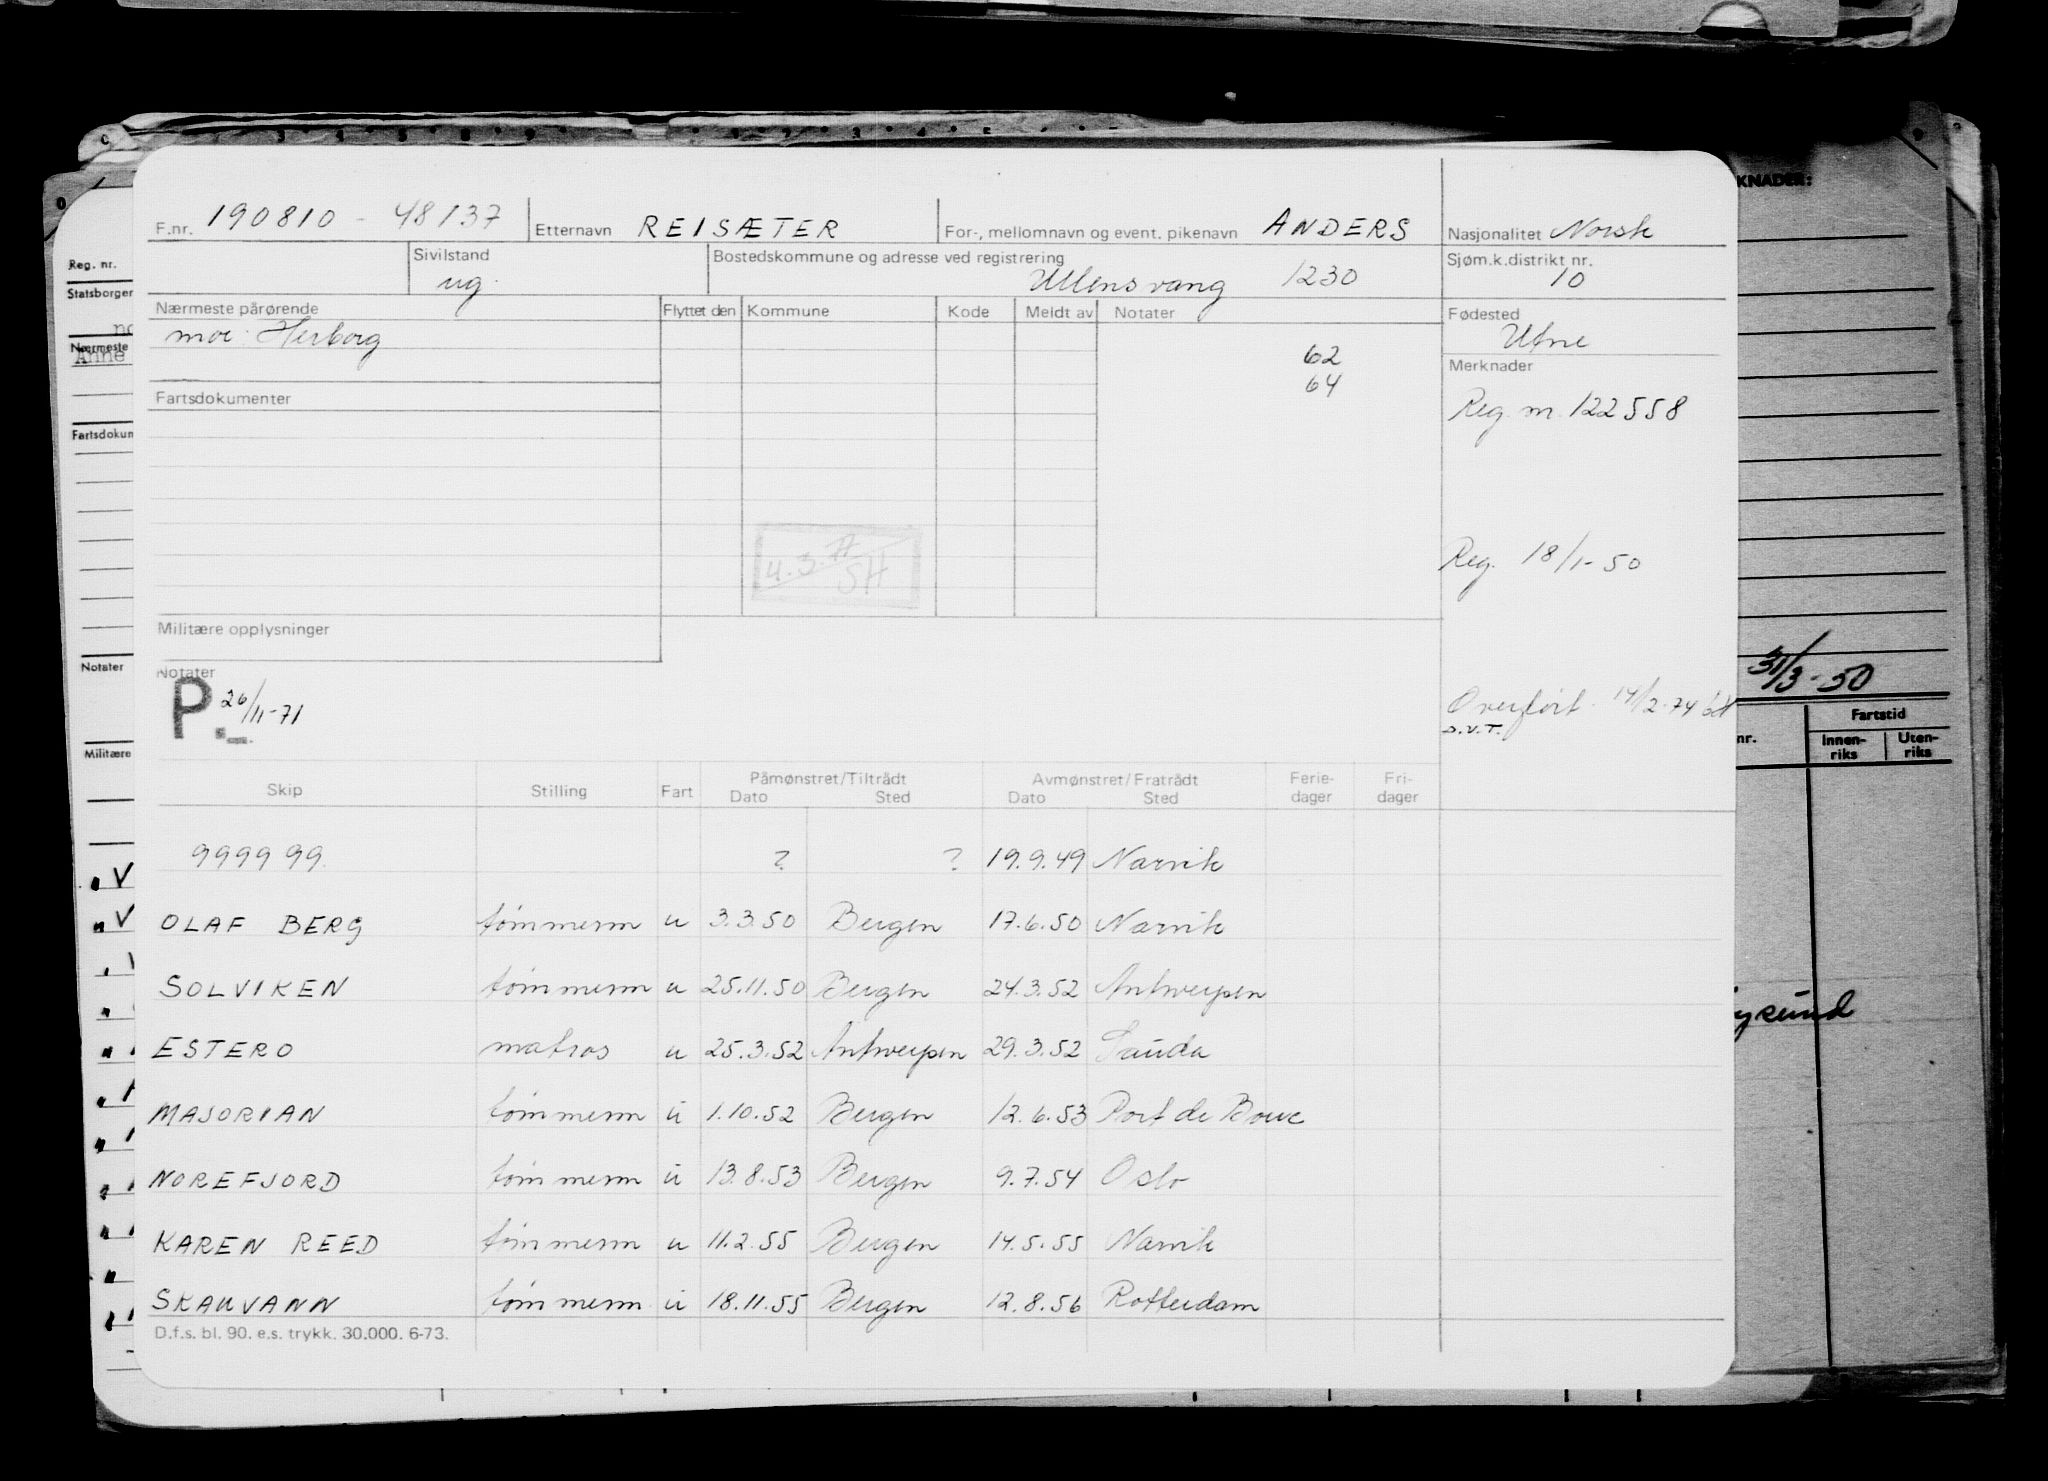 KNADER:
F.nr. 190810 - 48137 Etternavn REISÆTER For-, mellomnavn og event. pikenavn ANDERS Nasjonalitet Norsk
Reg. nr.
Sivilstand ug. Bostedskommune og adresse ved registrering Ullensvang 1230 Sjøm.k.distrikt nr. 10
Statsborger
Nærmeste pårørende Flyttet den Kommune Kode Meldt av Notater Fødested
mor: Herborg Utne
Nærmeste
Anne
62
64
Merknader
Fartsdokumenter
Reg. nr. 122558
Fartsdokum
4.3.77
SH
Reg. 18/1-50
Militære opplysninger
Notater
31/3-50
Notater
P. 26/11-71
Overført 14/2-74
D.V.T.
Fartstid
nr. Innenriks Utenriks
Militære
Skip Stilling Fart Påmønstret/Tiltrådt Avmønstret/Fratrådt Ferie- Fri-
Dato Sted Dato Sted dager dager
999999 ? ? 19.9.49 Narvik
OLAF BERG tømmerm u 3.3.50 Bergen 17.6.50 Narvik
SOLVIKEN tømmerm u 25.11.50 Bergen 24.3.52 Antwerpen
ESTERO matros u 25.3.52 Antwerpen 29.3.52 Sauda
MAJORIAN tømmerm u 1.10.52 Bergen 12.6.53 Port de Bouc
NOREFJORD tømmerm u 13.8.53 Bergen 9.7.54 Oslo
KAREN REED tømmerm u 11.2.55 Bergen 14.5.55 Narvik
SKAUVANN tømmerm u 18.11.55 Bergen 12.8.56 Rotterdam
D.f.s. bl. 90. e.s. trykk. 30.000. 6-73.